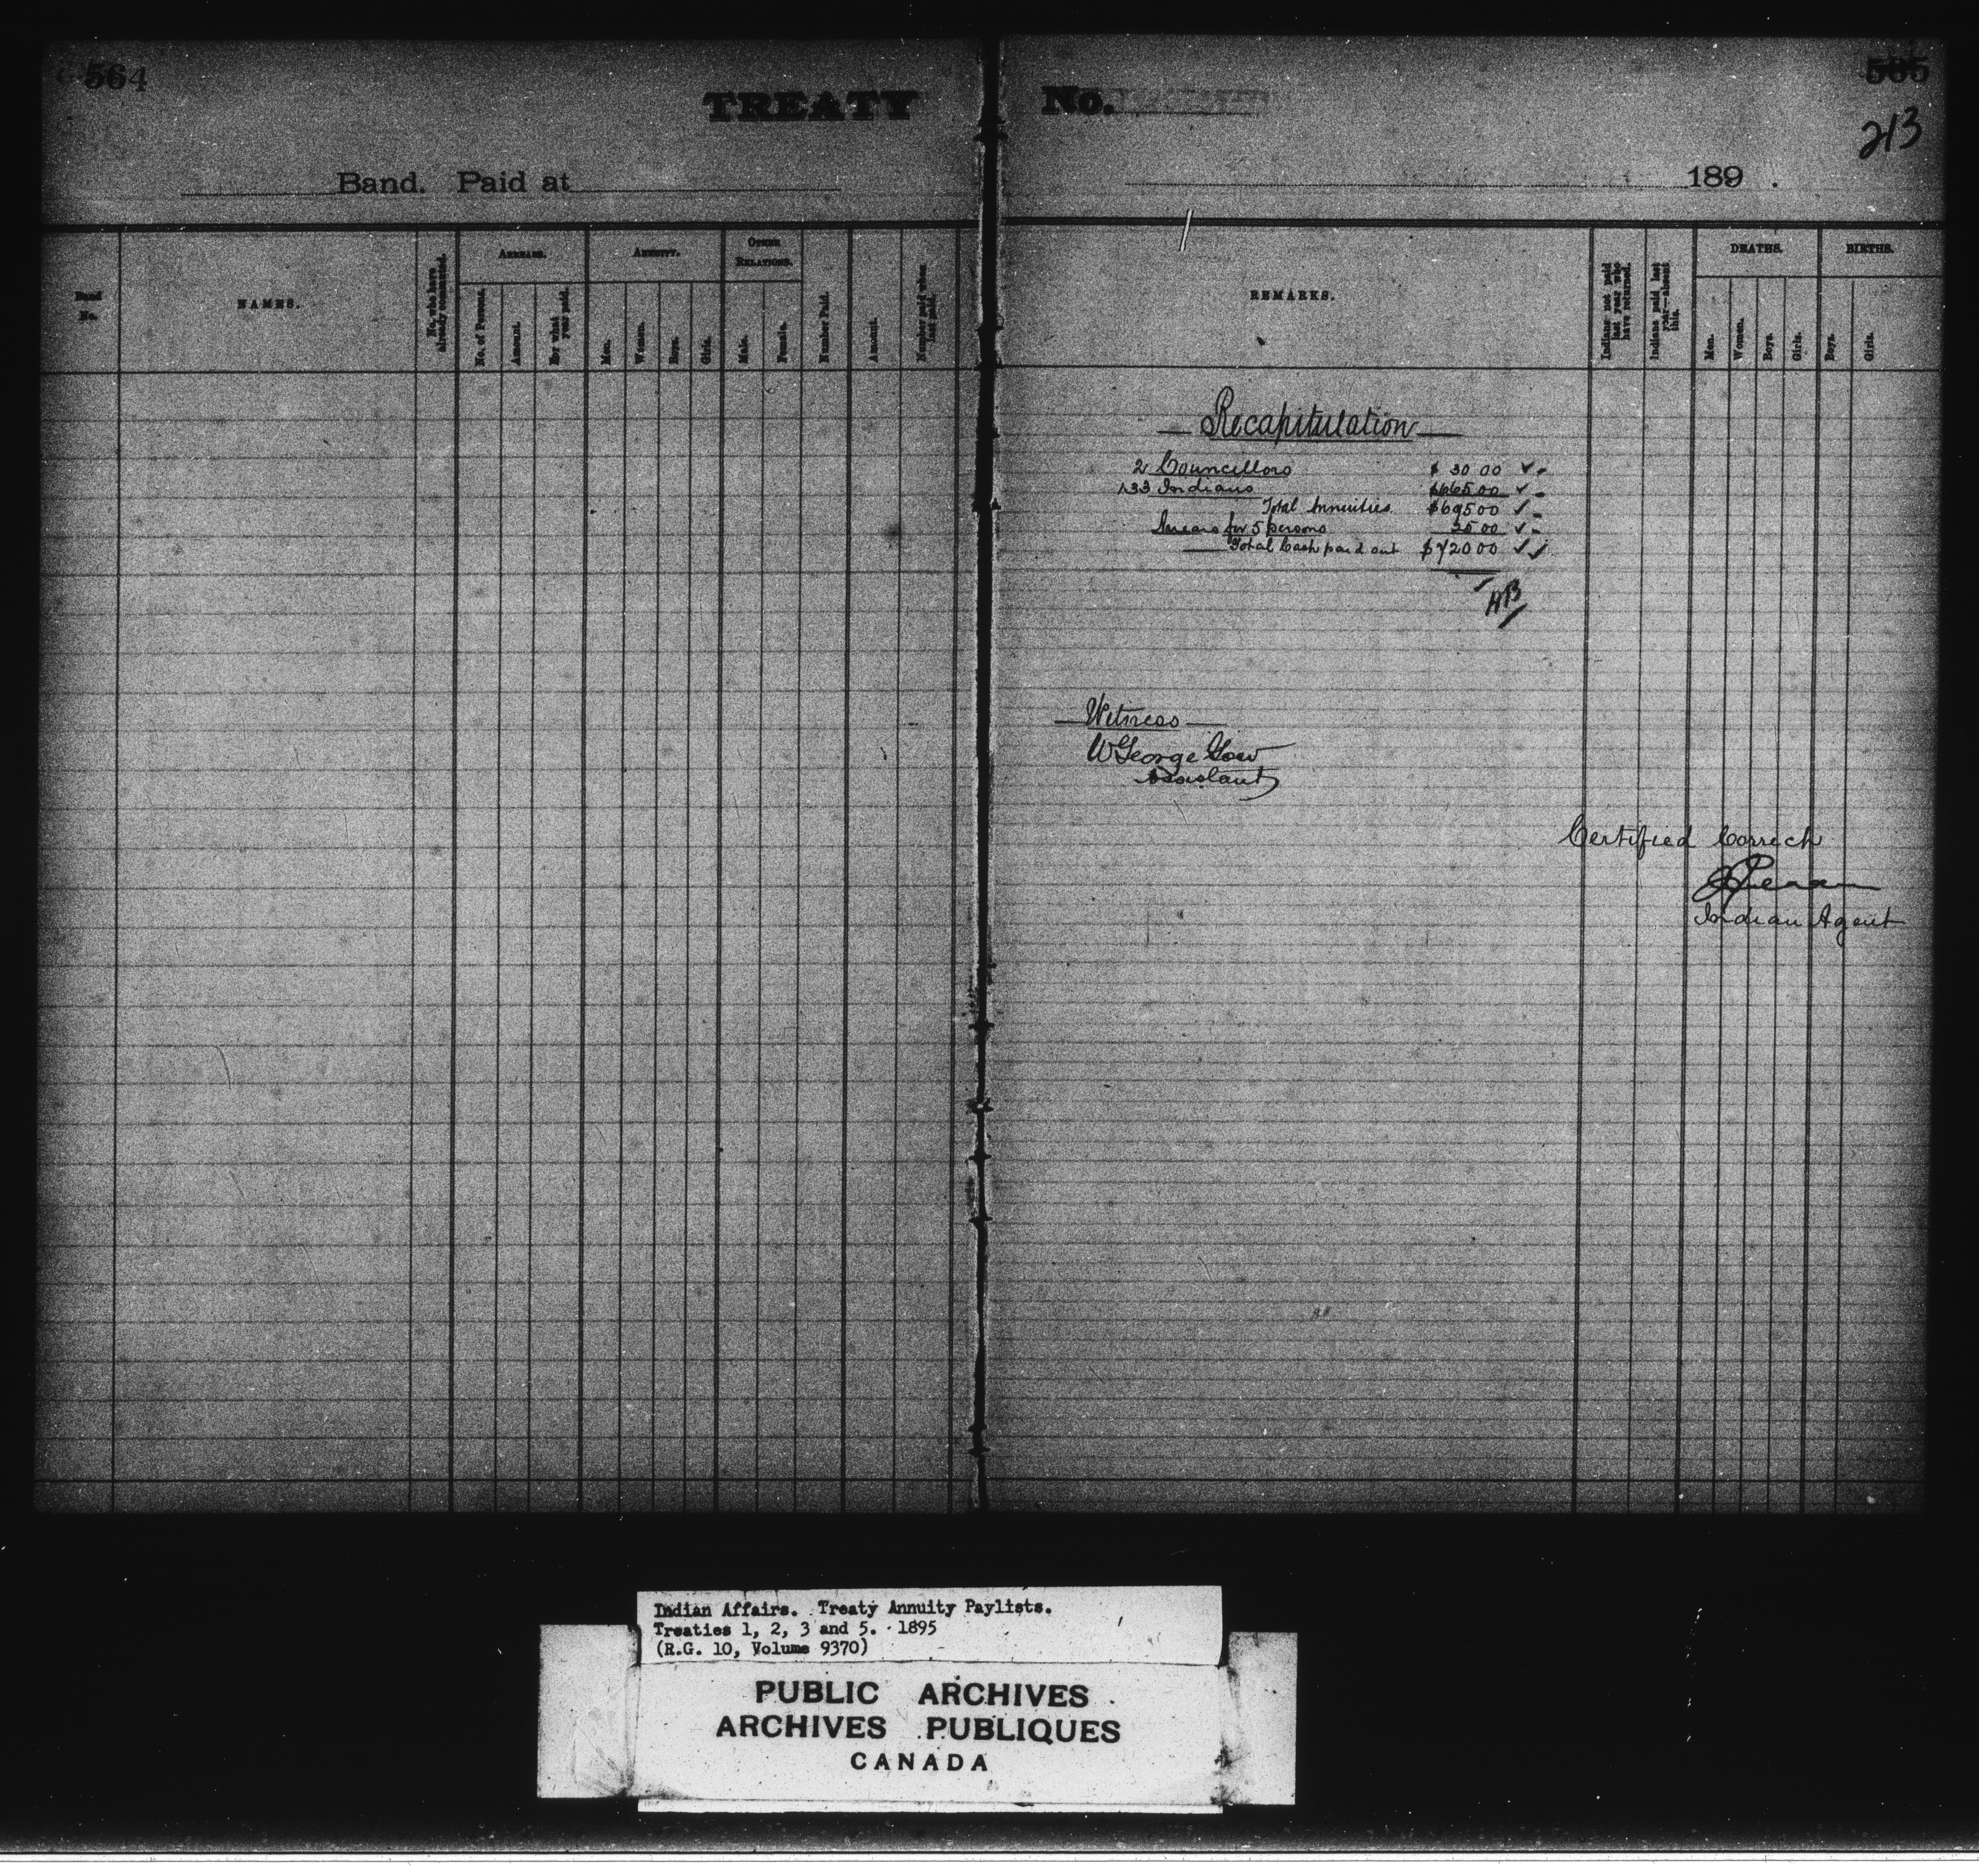 564
TREATY No.
565
213
Band. Paid at
189 .
Band No.
NAMES.
No. who have already commuted.
ARREARS.
No. of Persons.
Amount.
For what year paid.
ANNUITY.
Men.
Women.
Boys.
Girls.
OTHER RELATIONS.
Male.
Female.
Number Paid.
Amount.
Number paid when last paid.
REMARKS.
Indians not paid last year who have returned.
Indians paid last year—absent this.
DEATHS.
Men.
Women.
Boys.
Girls.
BIRTHS.
Boys.
Girls.
Recapitulation
2 Councillors $ 30 00
133 Indians $665 00
Total Annuities $695 00
Arrears for 5 persons 25 00
Total Cash paid out $720 00
Witness
W George
Assistant
Certified Correct
Indian Agent
Indian Affairs. Treaty Annuity Paylists.
Treaties 1, 2, 3 and 5. 1895
(R.G. 10, Volume 9370)
PUBLIC ARCHIVES
ARCHIVES PUBLIQUES
CANADA